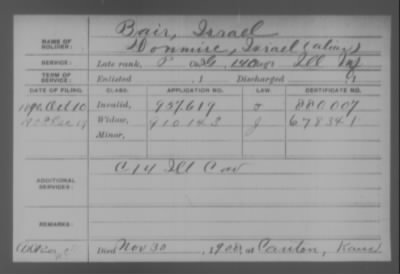 Bair, Israel
NAME OF SOLDIER: Donmire, Israel (alias)
SERVICE: Late rank, P Co. G, 140 Reg't Ill Inf
TERM OF SERVICE: Enlisted , 1 Discharged , 1
DATE OF FILING. CLASS. APPLICATION NO. LAW. CERTIFICATE NO.
1890 Oct 10 Invalid, 957619 J 880007
Dec 19 Widow, 910143 J 678341
Minor,
C 14 Ill Cav
ADDITIONAL SERVICES:
REMARKS:
Died Nov 30, 1908, at Canton, Kans